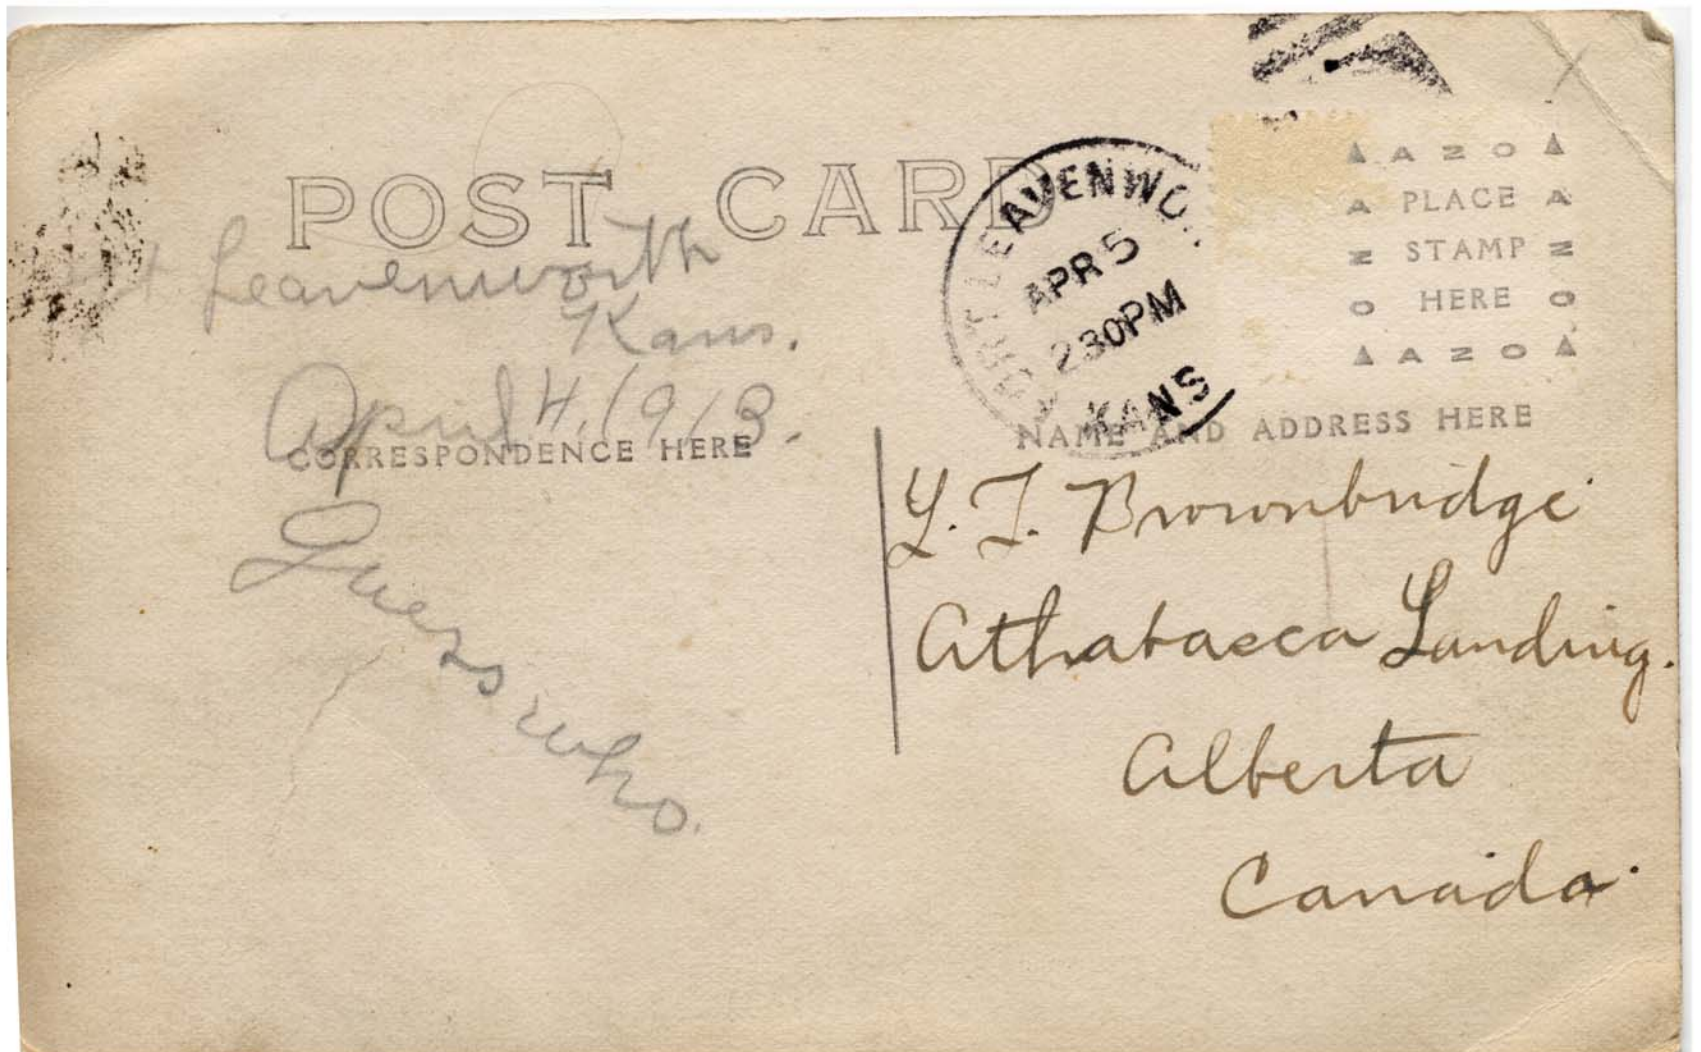 POST CARD
Leavenworth
Kans.
April 4, 1913.
CORRESPONDENCE HERE
Guess who.
FORT LEAVENWO
APR 5
230PM
KANS
AZO
PLACE
STAMP
HERE
AZO
NAME AND ADDRESS HERE
L. T. Brownbridge
Athabasca Landing.
Alberta
Canada.